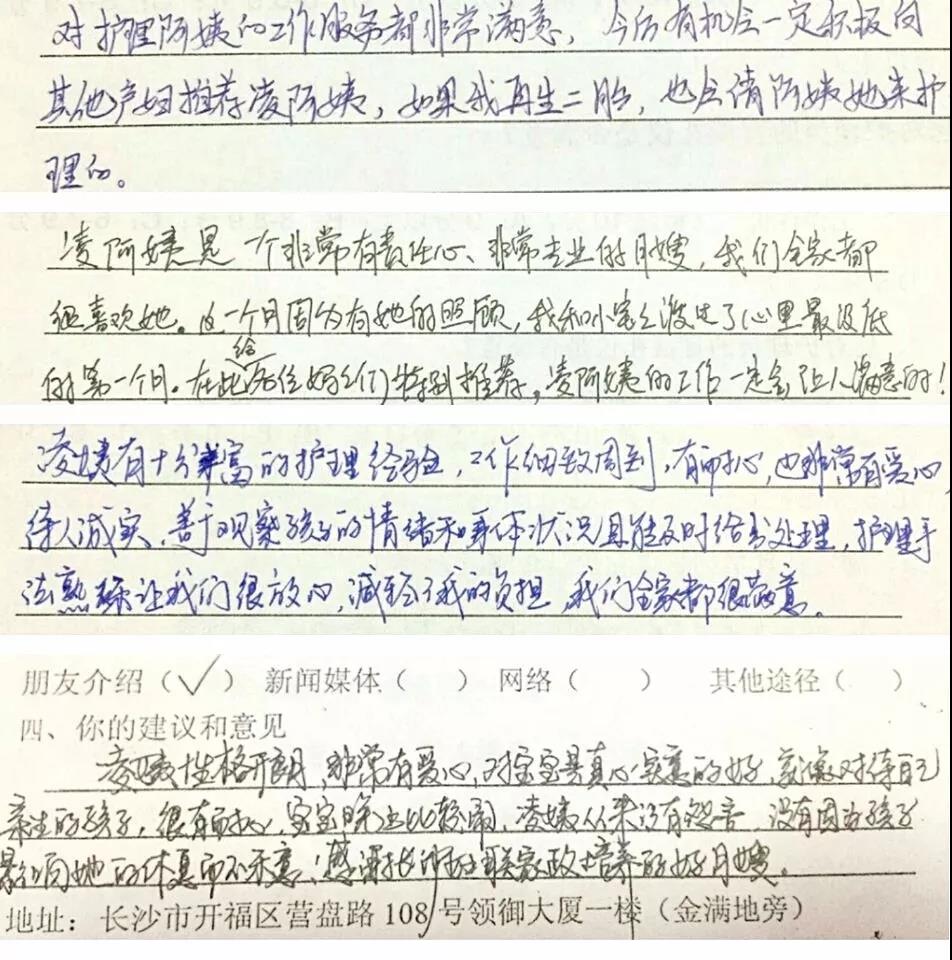 对护理阿姨的工作服务都非常满意，今后有机会一定积极向
其他产妇推荐凌阿姨，如果我再生二胎，也会请阿姨她来护
理的。
凌阿姨是一个非常有责任心、非常专业的月嫂，我们全家都
很喜欢她。这一个月因为有她的照顾，我和小宝宝渡过了心里最没底
的第一个月。在此给各位妈妈们特别推荐，凌阿姨的工作一定会让人满意的！
凌姨有十分丰富的护理经验，工作细致周到，有耐心，也非常有爱心
待人诚实、善于观察孩子的情绪和身体状况且能及时给予处理，护理手
法熟练让我们很放心，减轻了我的负担，我们全家都很满意。
朋友介绍（✓） 新闻媒体（ ） 网络（ ） 其他途径（ ）
四、你的建议和意见
凌姨性格开朗，非常有爱心，对宝宝是真心实意的好，就像对待自己
亲生的孩子，很有耐心，宝宝晚上比较闹，凌姨从来没有怨言，没有因为孩子
影响她的休息而不乐意！感谢 家政培养的好月嫂。
地址：长沙市开福区营盘路108号领御大厦一楼（金满地旁）